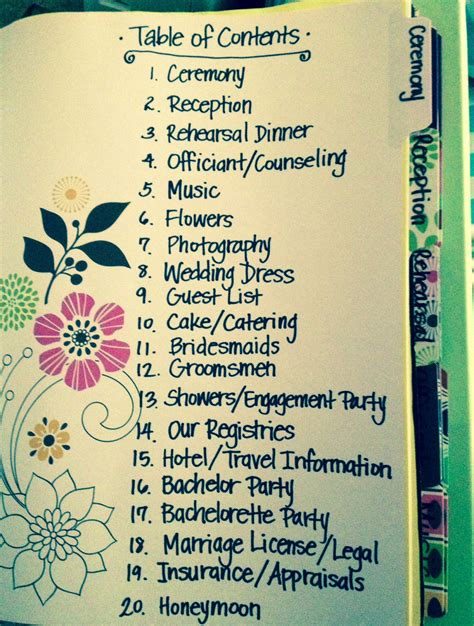 · Table of Contents ·
1. Ceremony
2. Reception
3. Rehearsal Dinner
4. Officiant/Counseling
5. Music
6. Flowers
7. Photography
8. Wedding Dress
9. Guest List
10. Cake/Catering
11. Bridesmaids
12. Groomsmen
13. Showers/Engagement Party
14. Our Registries
15. Hotel/Travel Information
16. Bachelor Party
17. Bachelorette Party
18. Marriage License/Legal
19. Insurance/Appraisals
20. Honeymoon
Ceremony
Reception